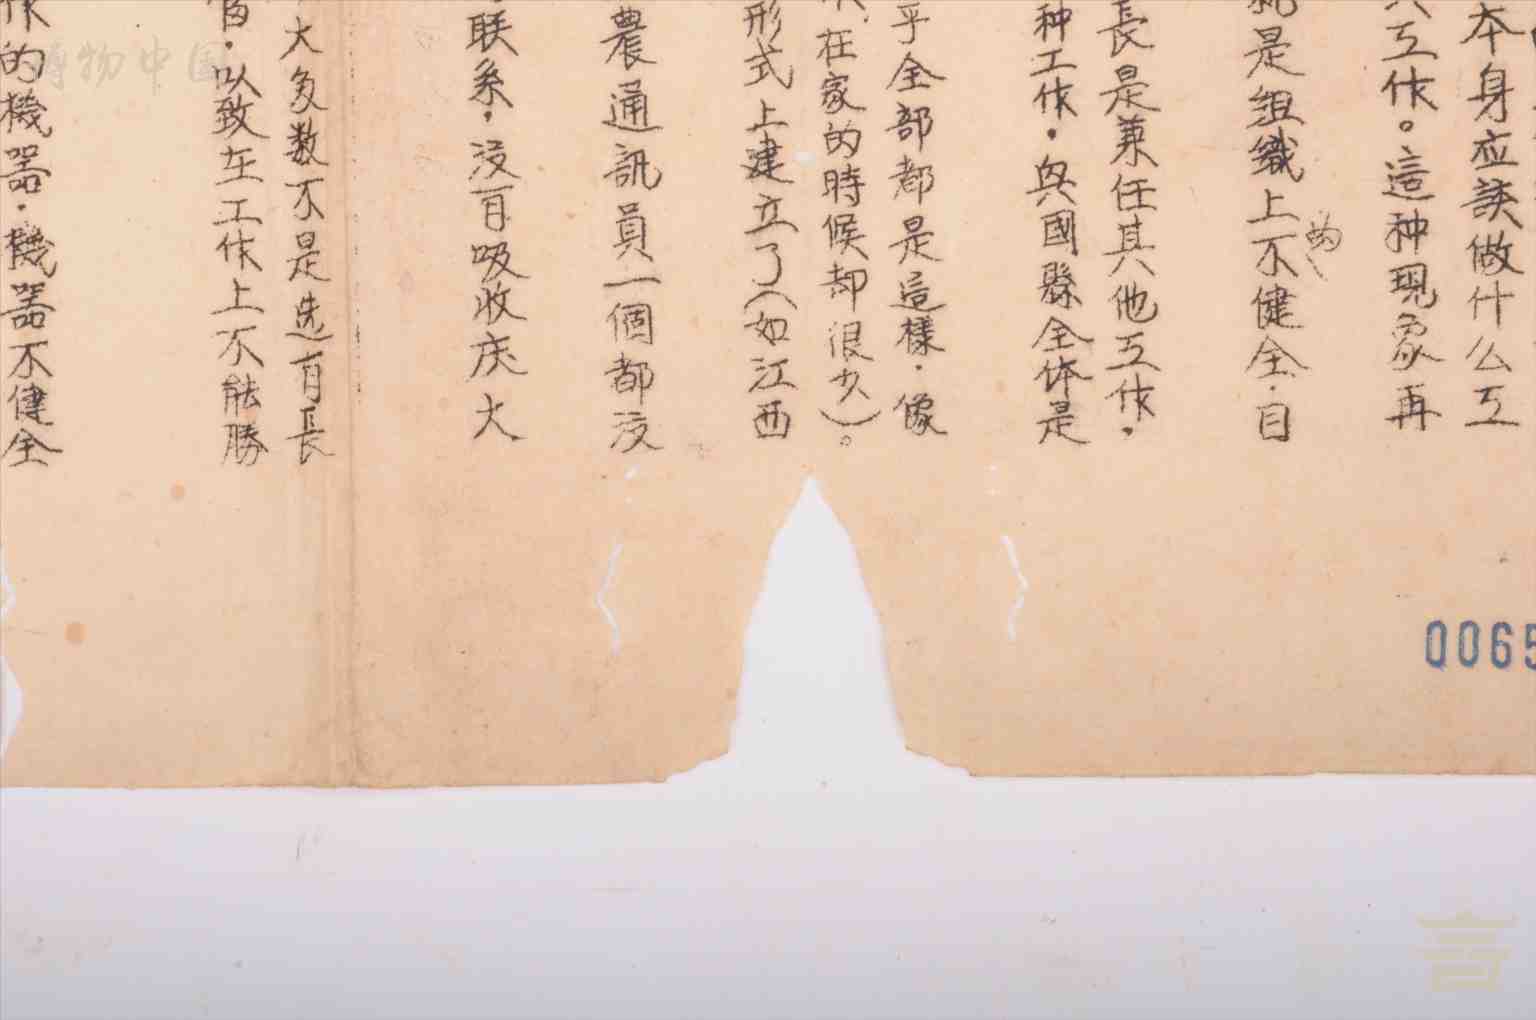 本身应談做什么工
工作。這种現象再
的
是組織上不健全．自
長是兼任其他工作，
种工作．與國縣全体是
乎全部都是這樣．像
在家的時候却很少）。
形式上建立了（如江西
農通訊員一個都没
联系，没有吸收庆大
大多数不是选有長
以致在工作上不能勝
作的機器．機器不健全
0065
博物中国